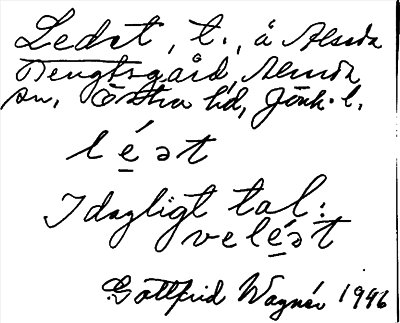 Ledet, t., å Alseda
Bengtsgård, Alseda
sn, Östra h:d, Jönk. l.
léət
I dagligt tal:
veléət
Gottfrid Wagnér 1946